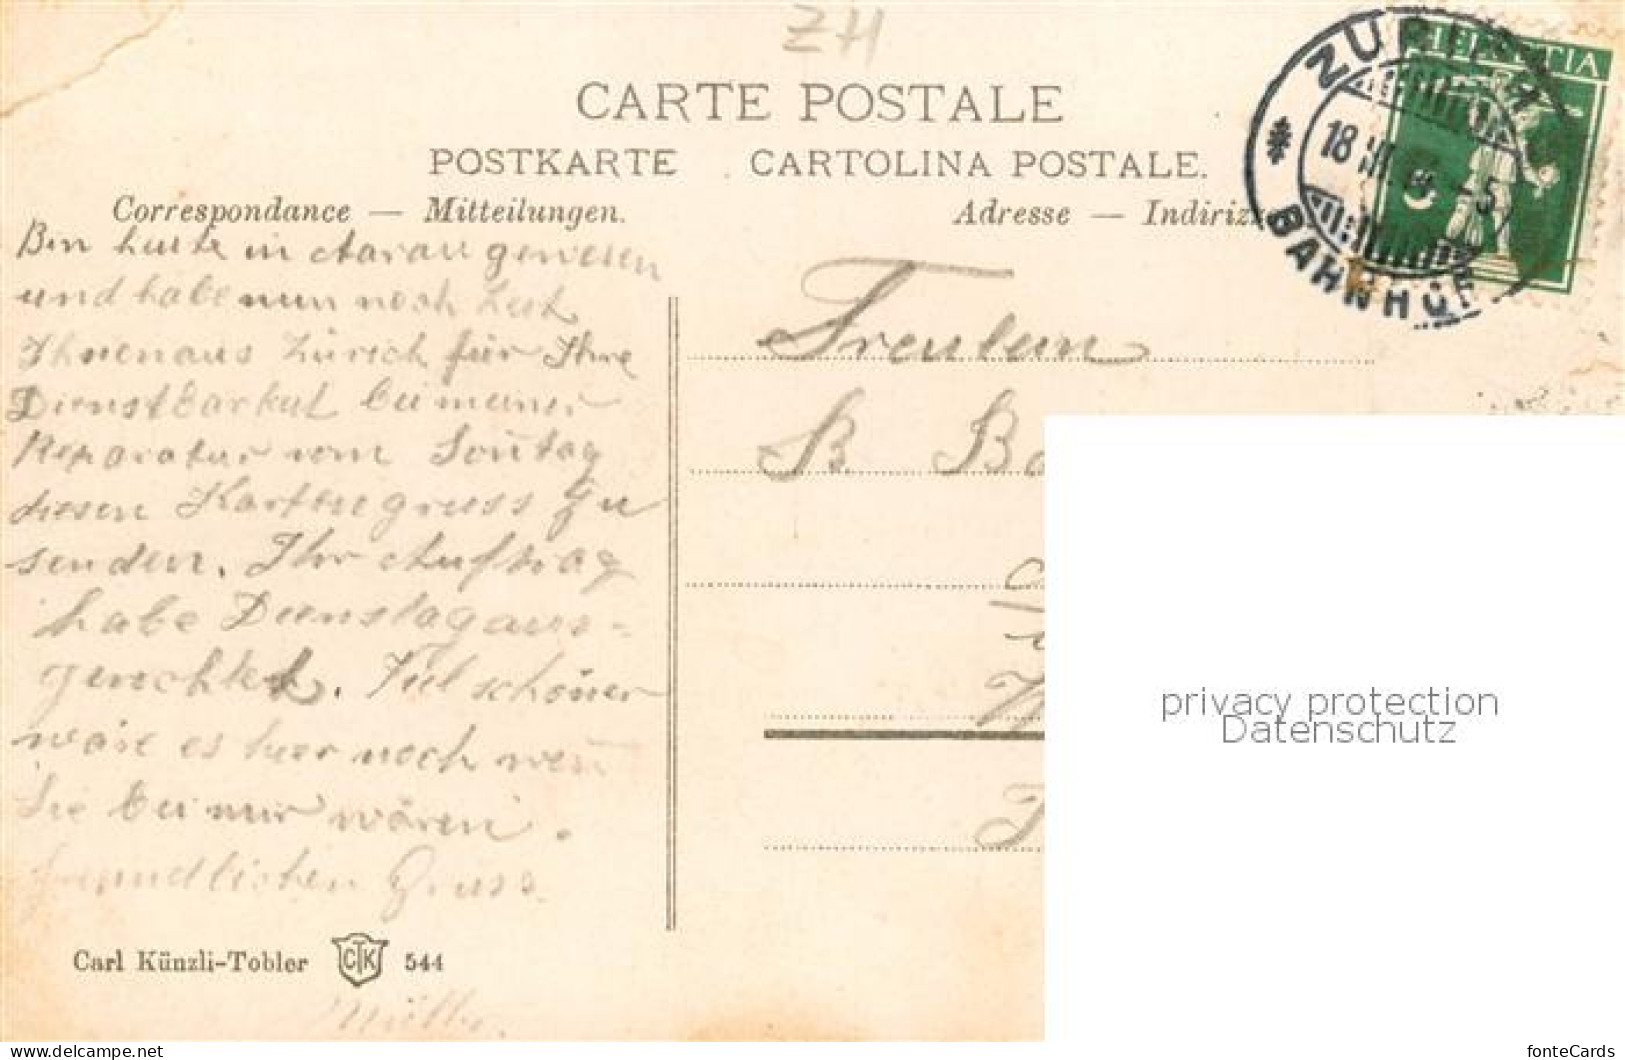 ZH
CARTE POSTALE
POSTKARTE CARTOLINA POSTALE.
Correspondance — Mitteilungen.
Adresse — Indirizzo
ZÜRICH
BAHNHOF
18 III -5
HELVETIA
5
Bin heute in Aarau gewesen
und habe nun noch Zeit
Ihnen aus Zürich für Ihre
Dienstbarkeit bei meiner
Reparatur vom Son̄tag
diesen Kartengruss zu
senden. Ihr Auftrag
habe Dienstag aus-
gerichtet. Viel schöner
wäre es hier noch wen̄
Sie bei mir wären.
freundlichen Gruss
Müller.
Freulein
B Ba
privacy protection
Datenschutz
Carl Künzli-Tobler CTK 544
www.delcampe.net
fonteCards